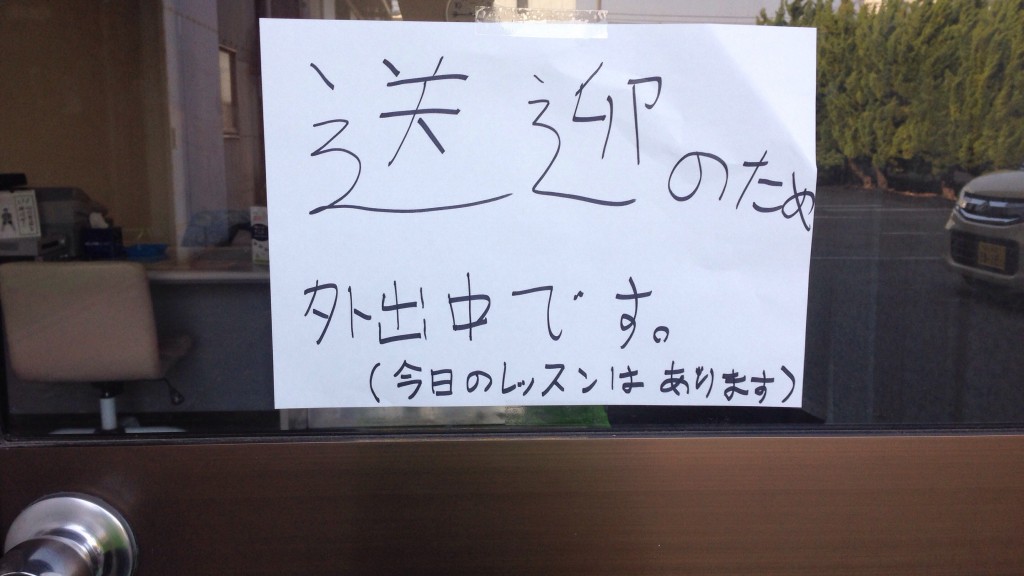 送迎のため
外出中です。
(今日のレッスンはあります)